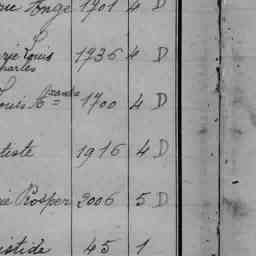 Tonge 1701 4 D
Louis
Charles 1736 4 D
Louis 1700 4 D
tiste 1916 4 D
Prosper 3006 5 D
istide 45 1